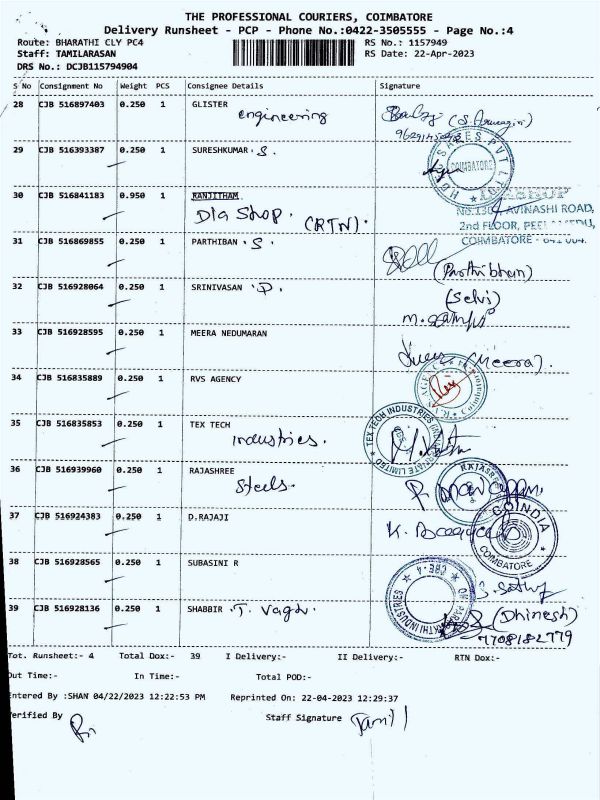 THE PROFESSIONAL COURIERS, COIMBATORE
Delivery Runsheet - PCP - Phone No.:0422-3505555 - Page No.:4
Route: BHARATHI CLY PC4 RS No.: 1157949
Staff: TAMILARASAN RS Date: 22-Apr-2023
DRS No.: DCJB115794904
S No Consignment No Weight PCS Consignee Details Signature
28 CJB 516897403 0.250 1 GLISTER
engineering
29 CJB 516393387 0.250 1 SURESHKUMAR . S.
COIMBATORE
30 CJB 516841183 0.950 1 RANJITHAM
Dia Shop. (RTN).
AVINASHI ROAD,
2nd FLOOR,
31 CJB 516869855 0.250 1 PARTHIBAN . S.
COIMBATORE - 641 004.
(Parthiban)
32 CJB 516928064 0.250 1 SRINIVASAN . P.
(Selvi)
33 CJB 516928595 0.250 1 MEERA NEDUMARAN
(Meera).
34 CJB 516835889 0.250 1 RVS AGENCY
35 CJB 516835853 0.250 1 TEX TECH
industries.
TEX TECH INDUSTRIES
36 CJB 516939960 0.250 1 RAJASHREE
Steels.
37 CJB 516924383 0.250 1 D.RAJAJI
COINDIA
COIMBATORE
38 CJB 516928565 0.250 1 SUBASINI R
CBE-4
39 CJB 516928136 0.250 1 SHABBIR . T.
(Dhinesh)
7708182779
Tot. Runsheet:- 4 Total Dox:- 39 I Delivery:- II Delivery:- RTN Dox:-
Out Time:- In Time:- Total POD:-
Entered By :SHAN 04/22/2023 12:22:53 PM Reprinted On: 22-04-2023 12:29:37
Verified By Staff Signature Tamil